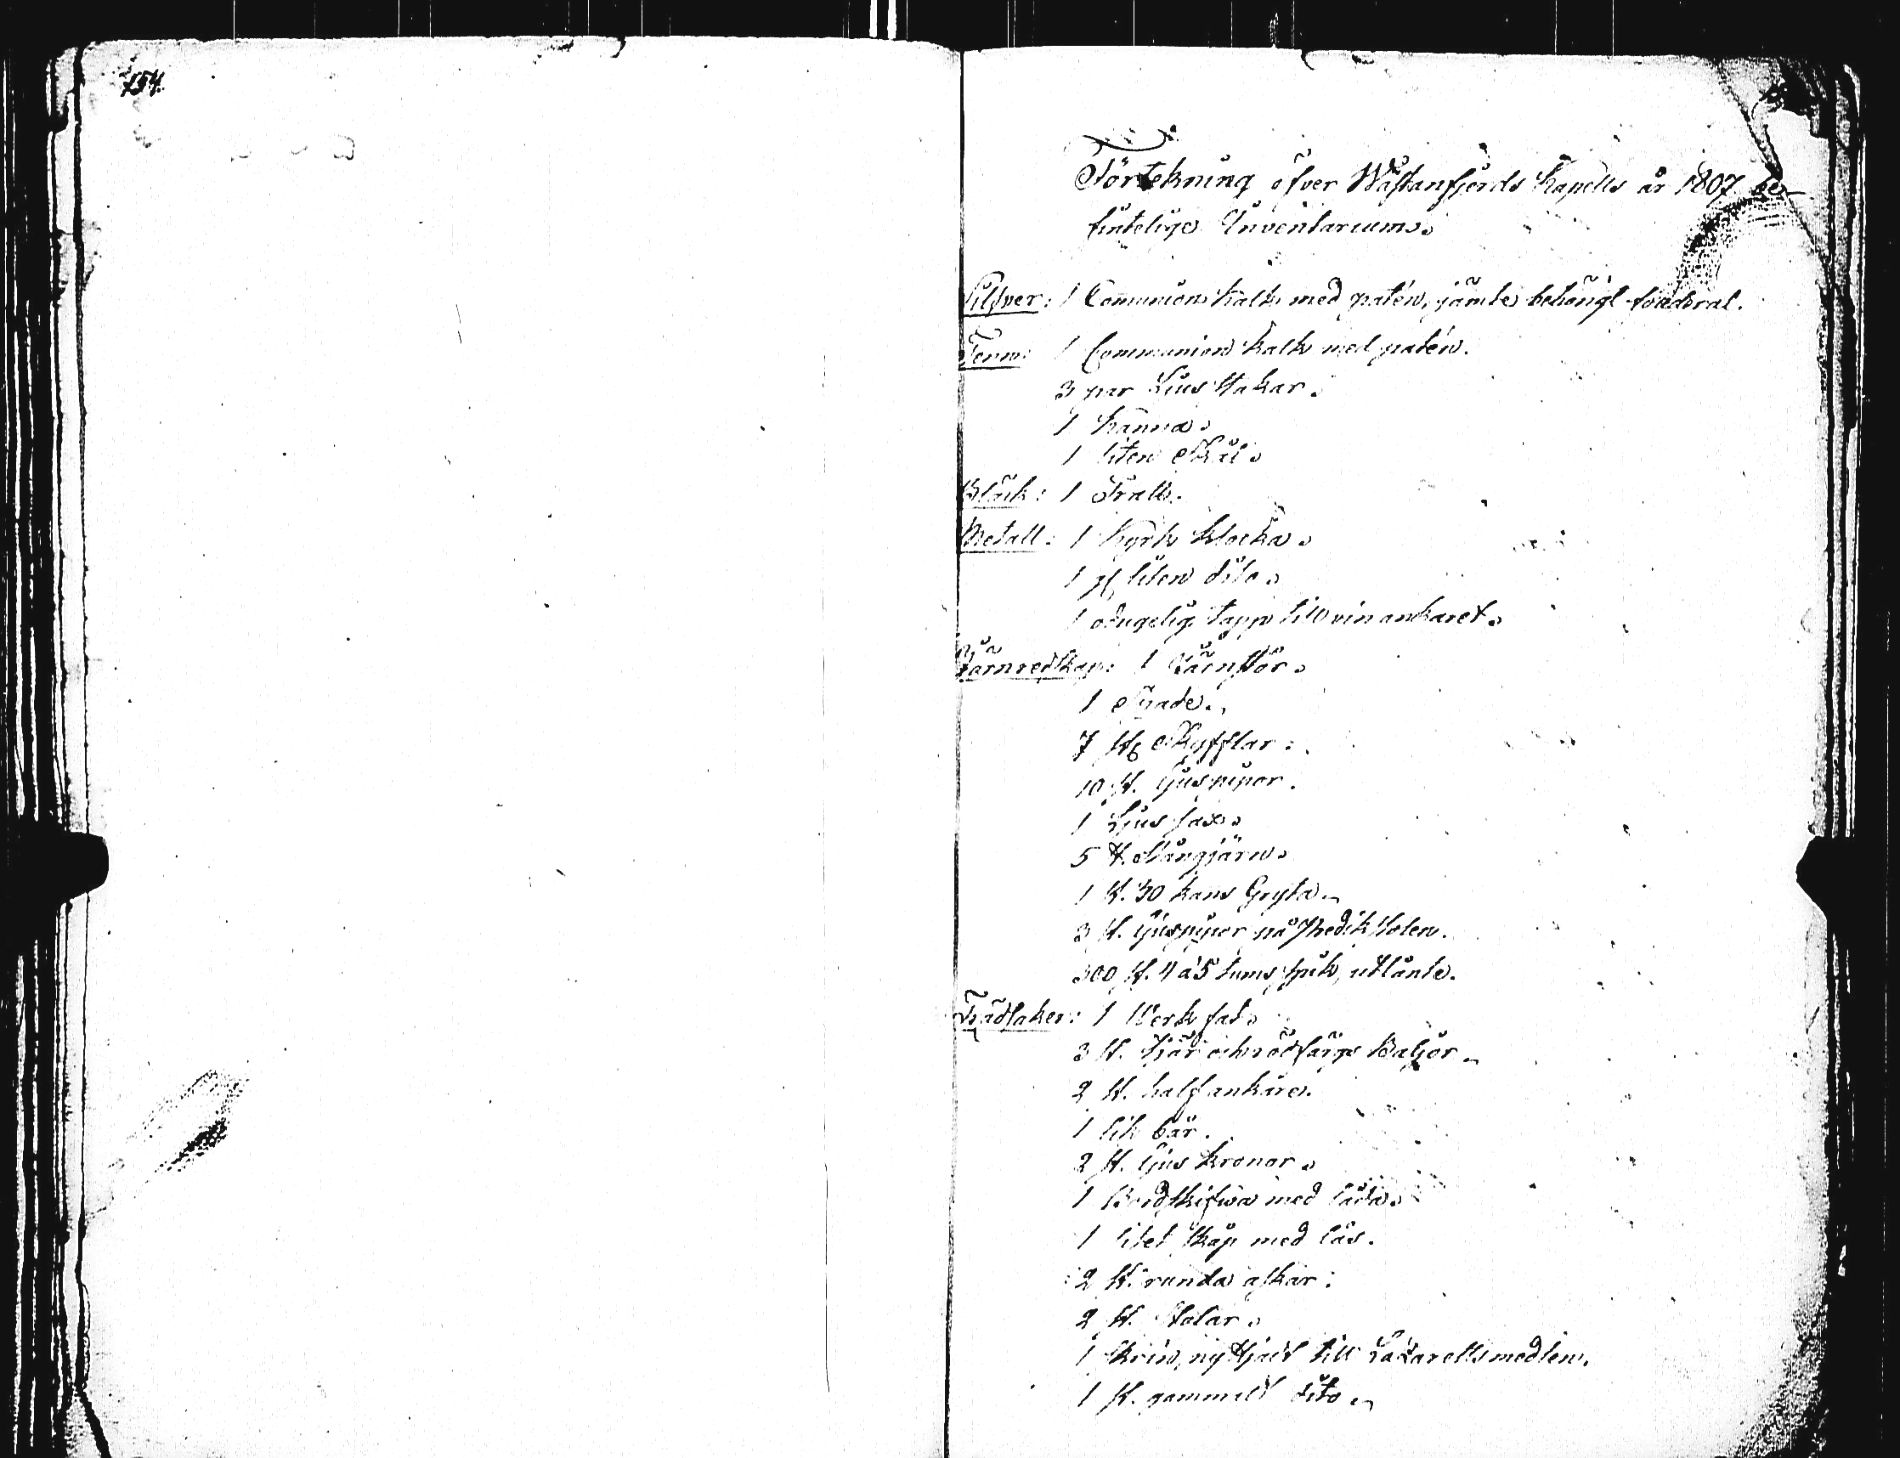 154.
Förtekning öfver Wästanfjerds Kapells år 1807 be-
fintelige Inventarium.
Silfver: 1 Communion kalk med patén, jämte behörigt foudral.
Tenn: 1 Communion kalk med patén.
3 par Ljus stakar.
1 kanna.
1 liten Skål.
Bläck: 1 Tratt.
Metall: 1 kyrk klocka.
1 st. liten dito.
1 odugelig tapp till vin ankaret.
Järnredskap: 1 Järnstör.
1 Spade.
7 st. Skyfflar.
10 st. Ljuspipor.
1 Ljus sax.
5 st. Stångjärn.
1 st. 30 kans Gryta.
3 st. Ljuspipor på Predikstolen.
300 st. 4 à 5 tums spik, utlånte.
Trädsaker: 1 Verk fat.
3 st. Tjär och rödfärgs Baljor.
2 st. half ankare.
1 lik bår.
2 st. Ljus kronor.
1 Bordskifwa med låda.
1 litet skåp med lås.
2 st. runda askar.
2 st. Stolar.
1 Skrin, nyttjadt till Lazaretts medlen.
1 st. gammalt dito.